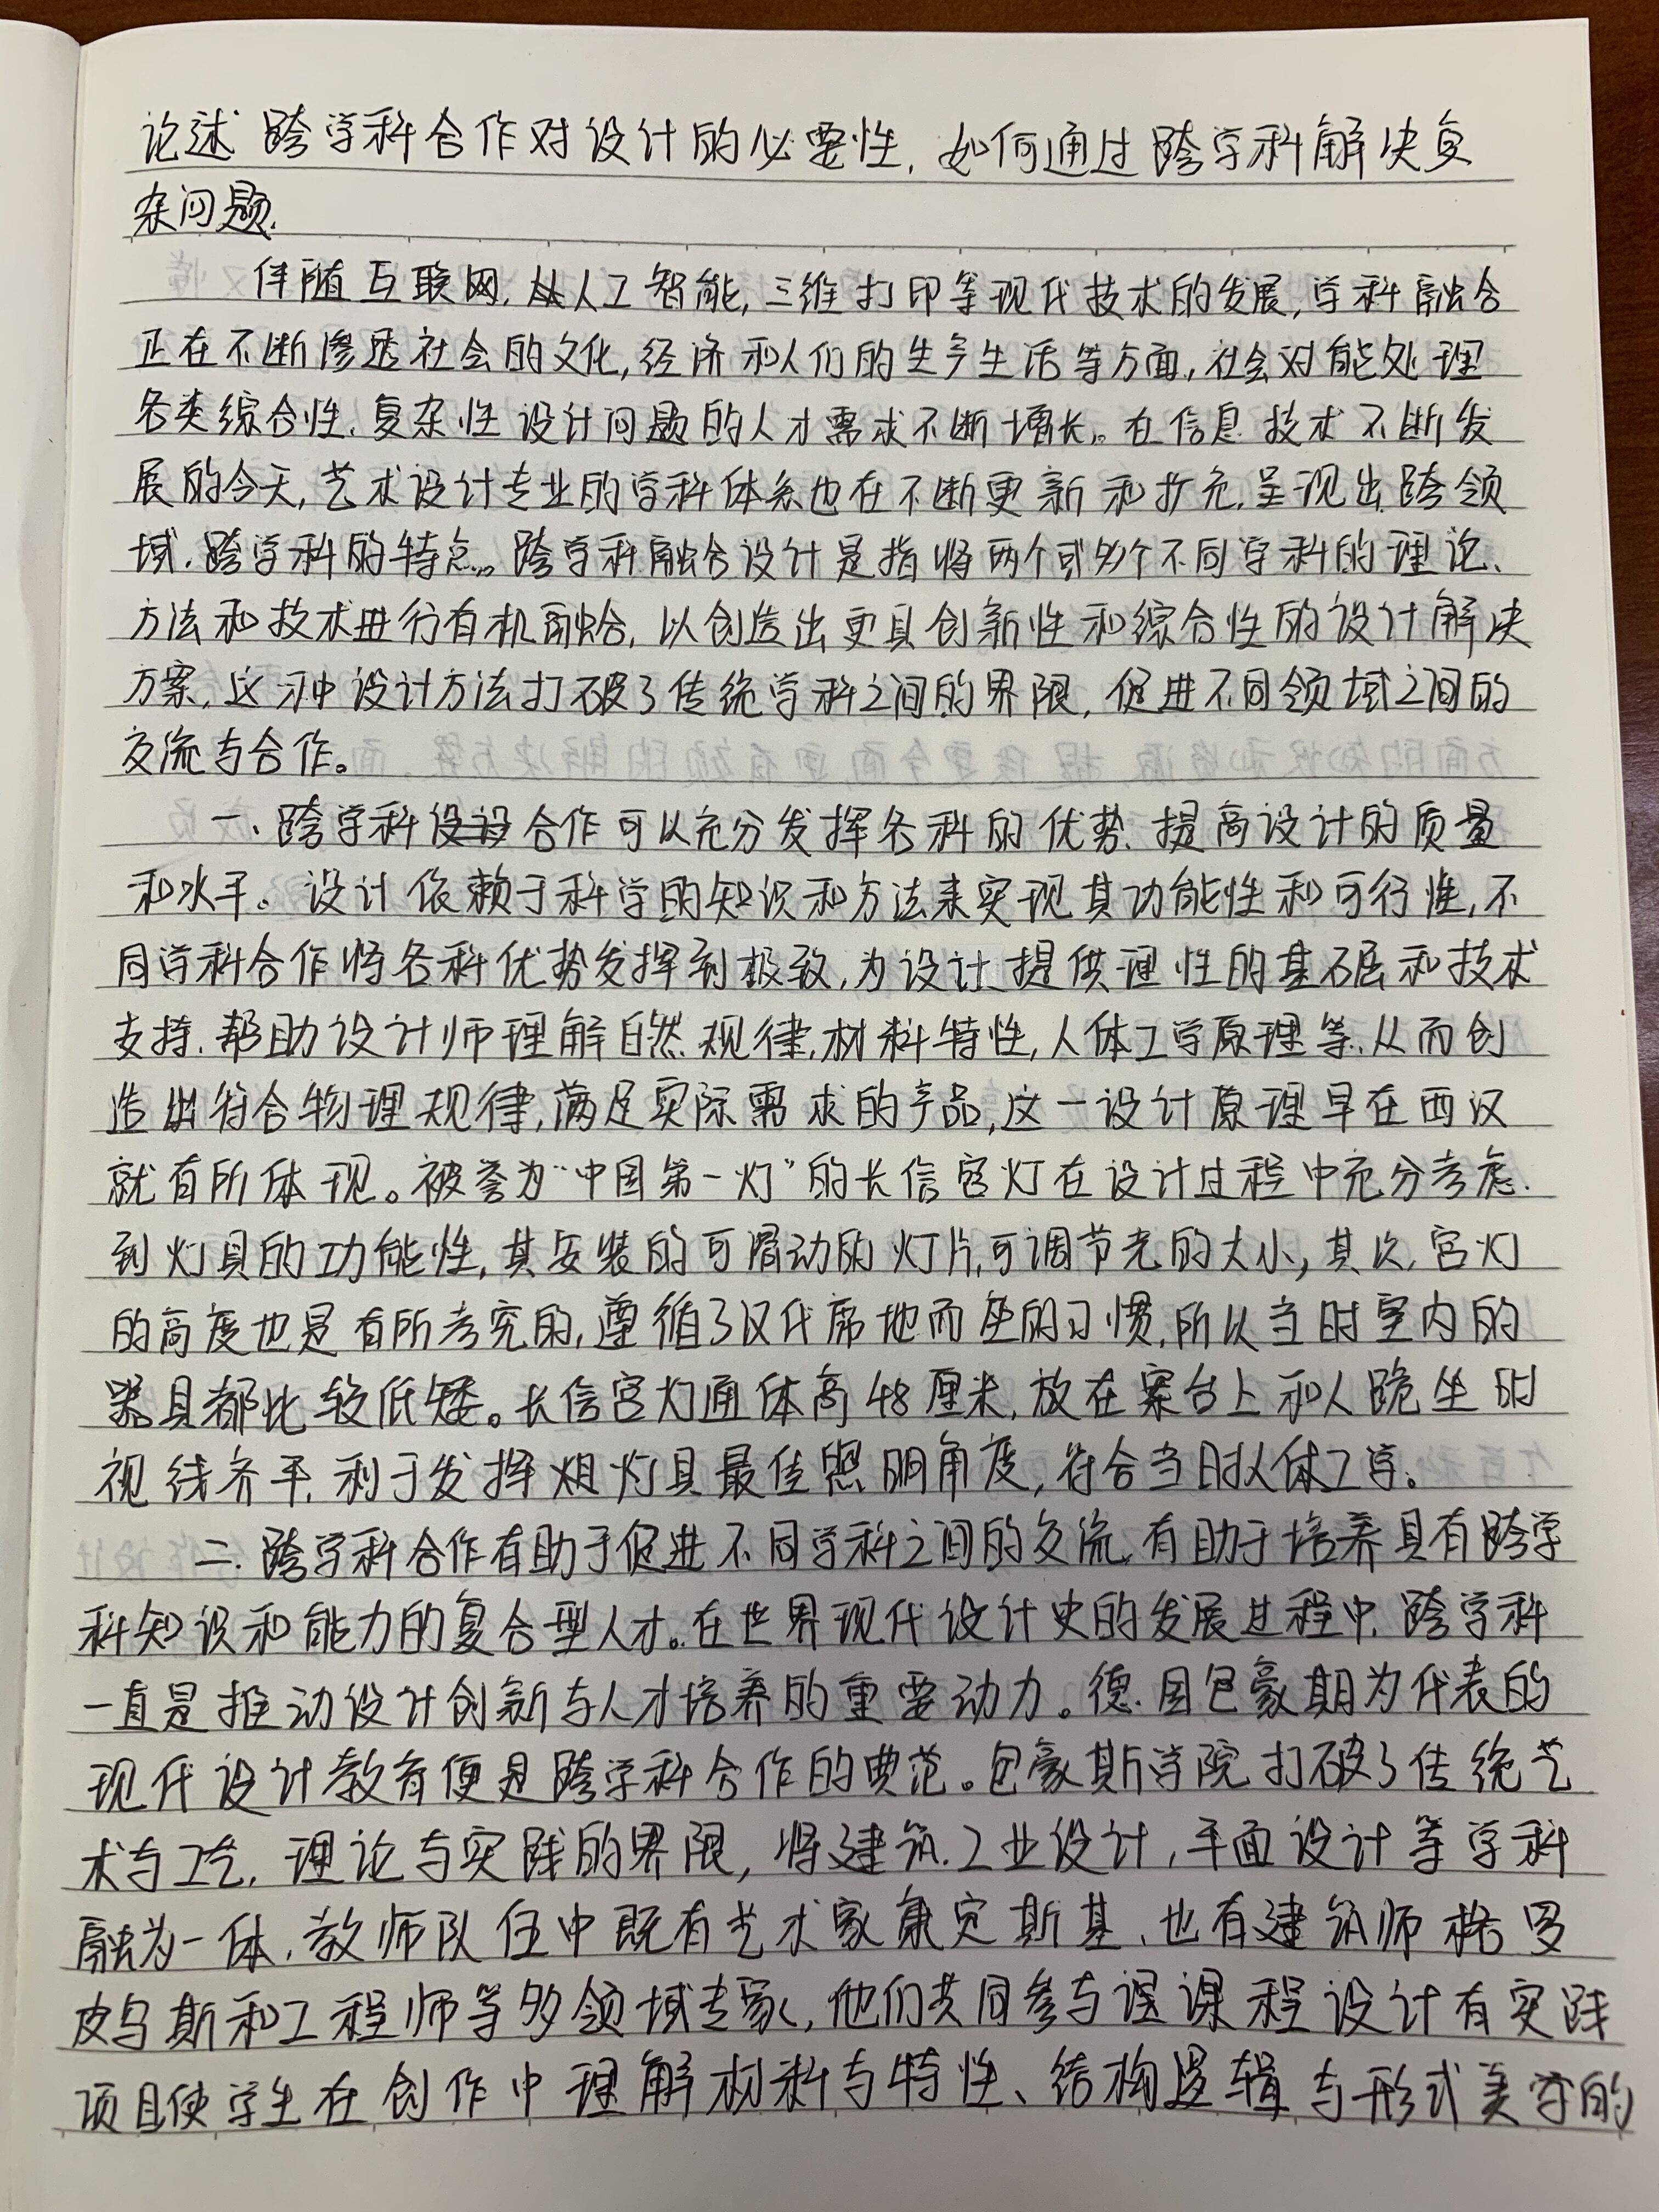 论述跨学科合作对设计的必要性,如何通过跨学科解决复
杂问题.
伴随互联网,人工智能,三维打印等现代技术的发展,学科融合
正在不断渗透社会的文化,经济和人们的生产生活等方面,社会对能处理
各类综合性、复杂性设计问题的人才需求不断增长。在信息技术不断发
展的今天,艺术设计专业的学科体系也在不断更新和扩充,呈现出跨领
域、跨学科的特点。跨学科融合设计是指将两个或多个不同学科的理论、
方法和技术进行有机融合,以创造出更具创新性和综合性的设计解决
方案,这种设计方法打破了传统学科之间的界限,促进不同领域之间的
交流与合作。
一、跨学科合作可以充分发挥各科的优势、提高设计的质量
和水平。设计依赖于科学的知识和方法来实现其功能性和可行性,不
同学科合作将各科优势发挥到极致,为设计提供理性的基础和技术
支持、帮助设计师理解自然规律,材料特性,人体工学原理等、从而创
造出符合物理规律,满足实际需求的产品,这一设计原理早在西汉
就有所体现。被誉为“中国第一灯”的长信宫灯在设计过程中充分考虑
到灯具的功能性,其安装的可滑动的灯片,可调节光的大小,其次,宫灯
的高度也是有所考究的,遵循了汉代席地而坐的习惯,所以当时室内的
器具都比较低矮。长信宫灯通体高48厘米,放在案台上和人跪坐时
视线齐平,利于发挥灯具最佳照明角度,符合当时人体工学。
二、跨学科合作有助于促进不同学科之间的交流,有助于培养具有跨学
科知识和能力的复合型人才。在世界现代设计史的发展过程中,跨学科
一直是推动设计创新与人才培养的重要动力。德国包豪期为代表的
现代设计教育便是跨学科合作的典范。包豪斯学院打破了传统艺
术与工艺,理论与实践的界限,将建筑、工业设计,平面设计等学科
融为一体,教师队伍中既有艺术家康定斯基、也有建筑师格罗
皮乌斯和工程师等多领域专家,他们共同参与课程设计有实践
项目使学生在创作中理解材料与特性、结构逻辑与形式美学的